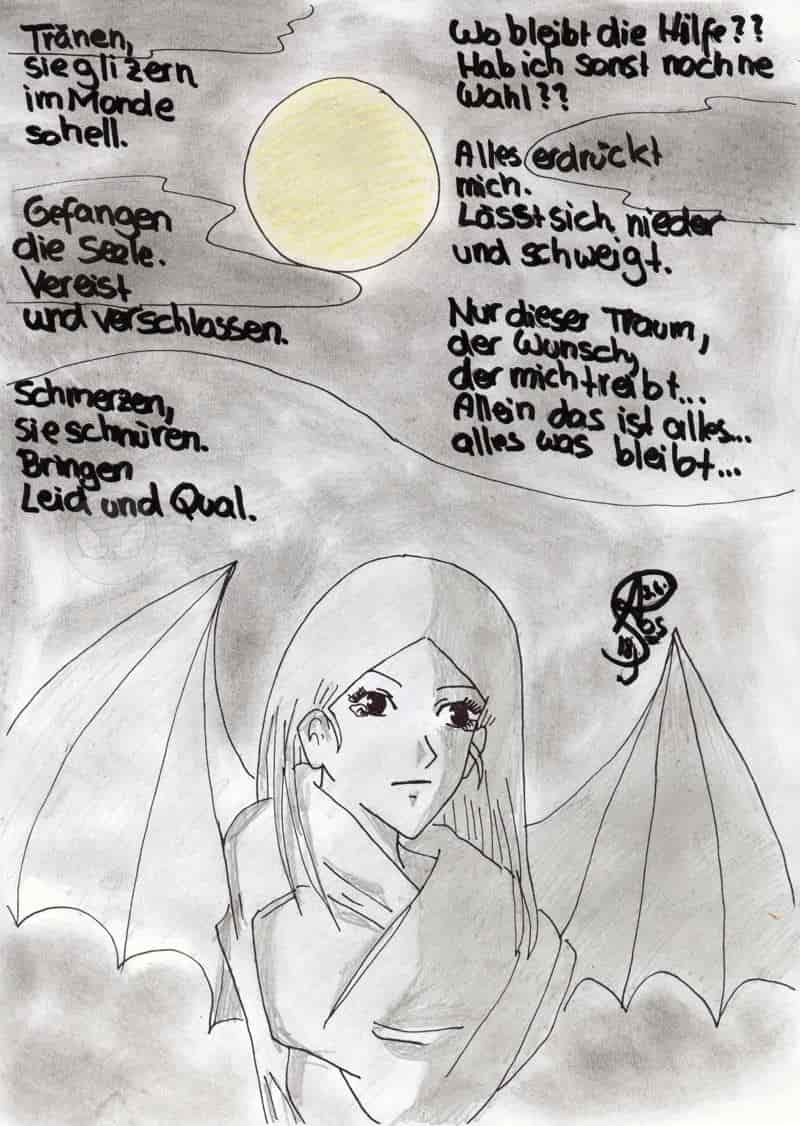 Tränen,
sie glizern
im Monde
so hell.
Gefangen
die Seele.
Vereist
und verschlossen.
Schmerzen,
sie schnüren.
Bringen
Leid und Qual.
Wo bleibt die Hilfe??
Hab ich sonst noch ne
Wahl??
Alles erdrückt
mich.
Lässt sich nieder
und schweigt.
Nur dieser Traum,
der Wunsch,
der mich treibt...
Allein das ist alles...
alles was bleibt...